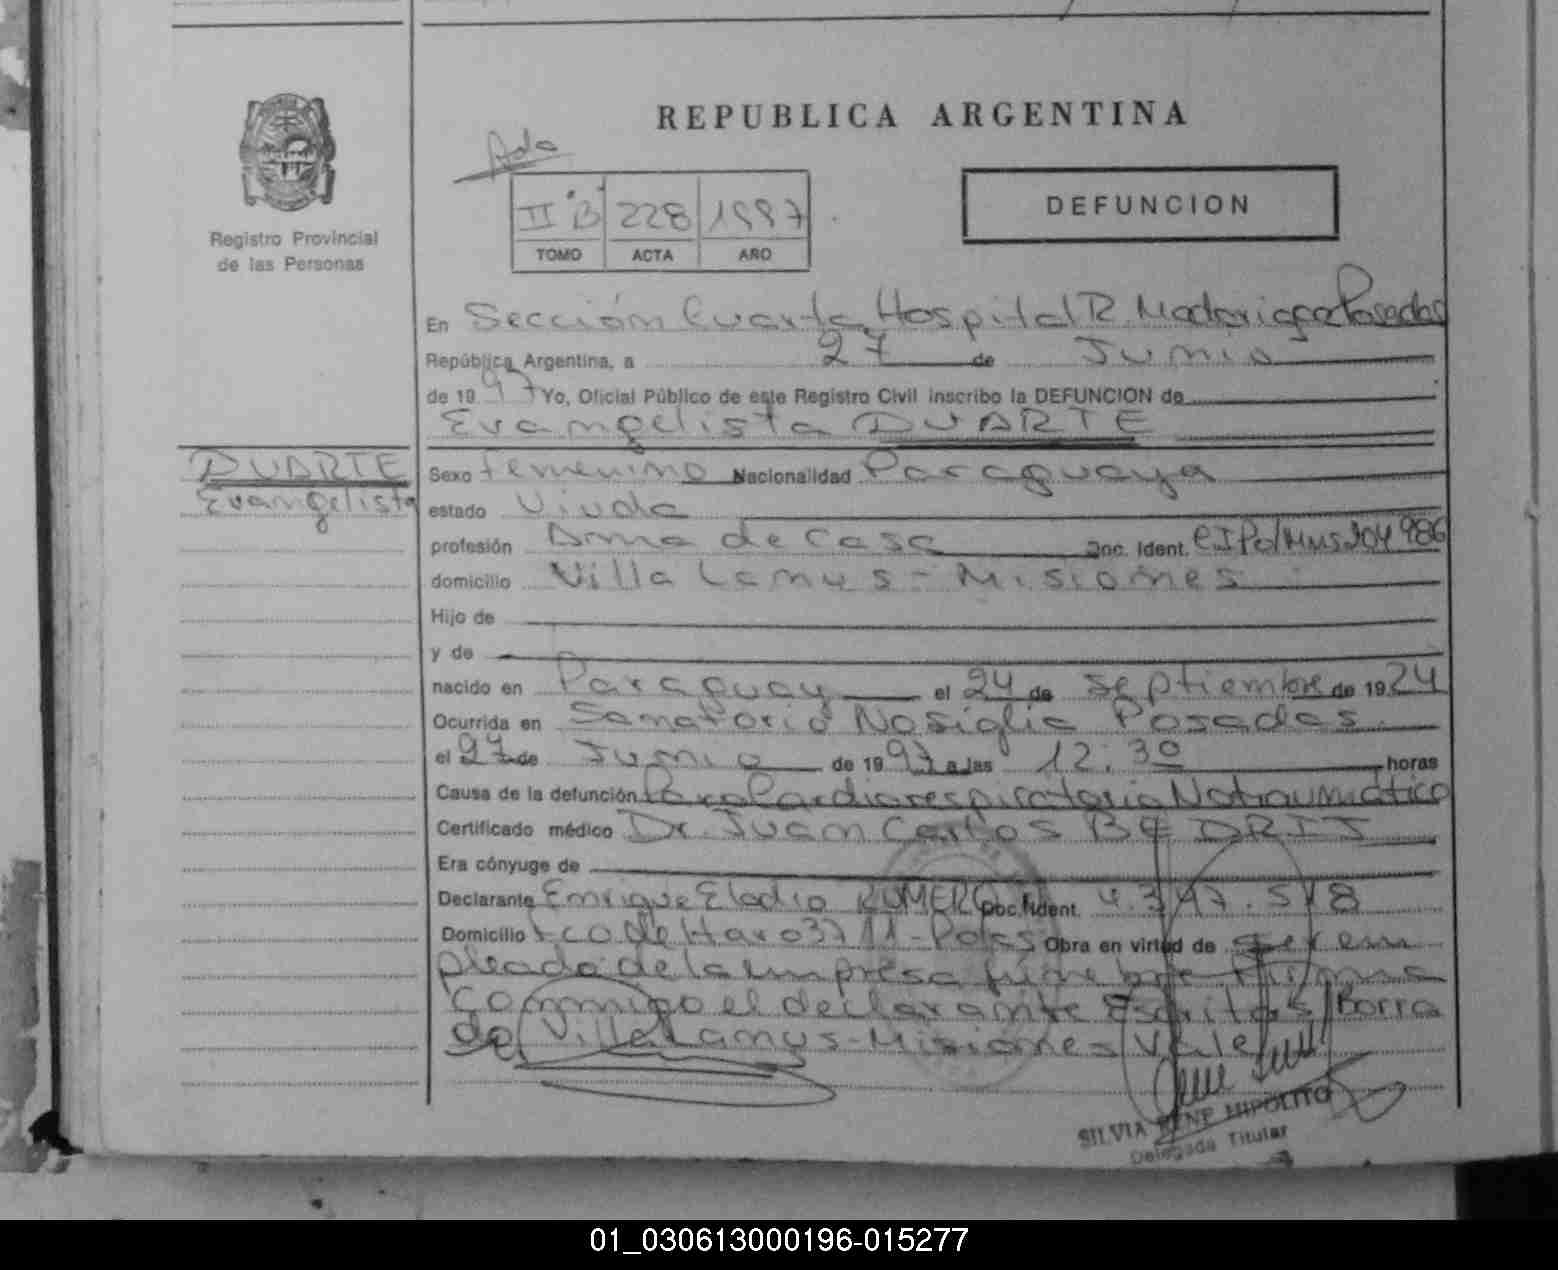 REPUBLICA ARGENTINA
Ado
II "B" 228 1997
TOMO ACTA AÑO
DEFUNCION
Registro Provincial
de las Personas
En Sección Cuarta Hospital R. Madariaga Posadas
República Argentina, a 27 de Junio
de 1997 Yo, Oficial Público de este Registro Civil inscribo la DEFUNCION de
Evangelista DUARTE
DUARTE
Evangelista
Sexo femenino Nacionalidad Paraguaya
estado Viuda
profesión Ama de casa Doc. Ident. CIPol Mns 204986
domicilio Villa Lanus - Misiones
Hijo de
y de
nacido en Paraguay el 24 de septiembre de 1924
Ocurrida en Sanatorio Nosiglia Posadas
el 27 de Junio de 1997 a las 12:30 horas
Causa de la defunción Paro Cardiorespiratorio No traumático
Certificado médico Dr. Juan Carlos
Era cónyuge de
Declarante Enrique Eladio ROMERO Doc. Ident. 4.347.518
Domicilio Fco de Haro 3711 - Pdas Obra en virtud de ser em
pleado de la empresa fúnebre Firma
conmigo el declarante Escritos/Borra
do Villa Lanus - Misiones Vale
SILVIA RENE HIPOLITO
Delegada Titular
01_030613000196-015277